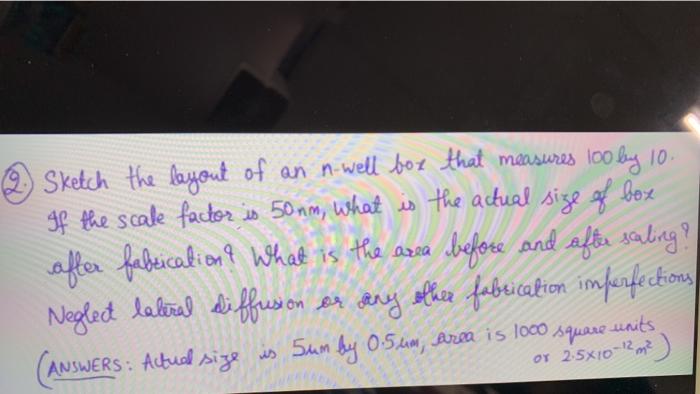 2. Sketch the layout of an n-well box that measures 100 by 10.
If the scale factor is 50nm, what is the actual size of box
after fabrication? What is the area before and after scaling?
Neglect lateral diffusion or any other fabrication imperfections
(ANSWERS: Actual size is 5um by 0.5um, area is 1000 square units
or 2.5x10⁻¹² m²)